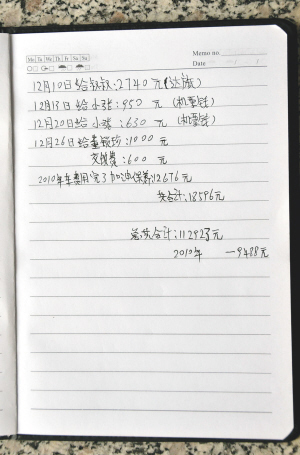 Memo no.
Mo Tu We Th Fr Sa Su
Date
12月10日给叔叔:2740元(达旅)
12月13日给小张:950元(机票钱)
12月20日给小张:630元(机票钱)
12月26日给董敏珍:1000元
交换费:600元
2010年车费用完了加油保养:12676元
共合计:18596元
总共合计:112923元
2010年 一9488元